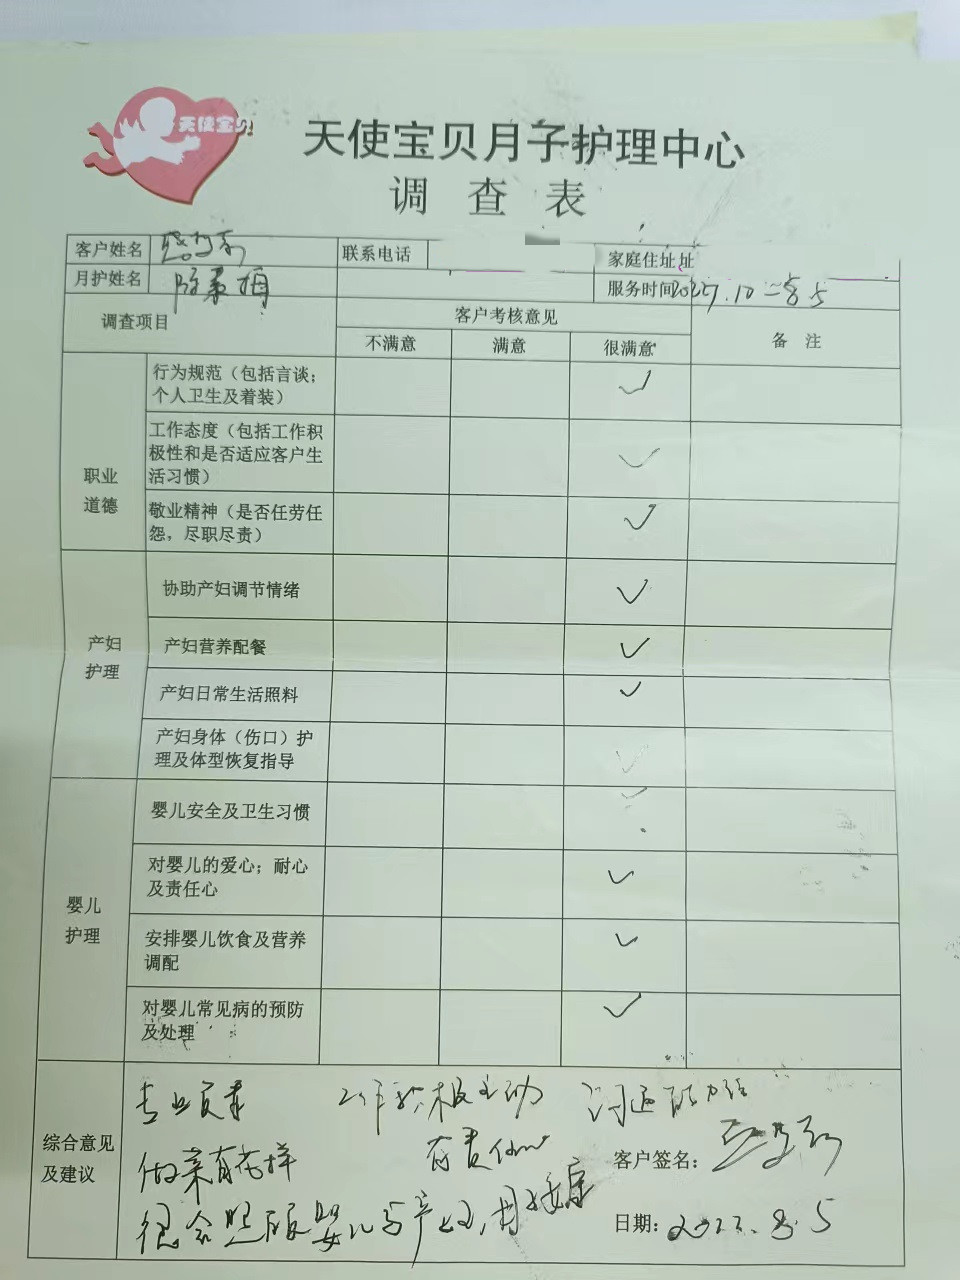 天使宝贝
天使宝贝月子护理中心
调 查 表
客户姓名 联系电话 家庭住址址
月护姓名 服务时间
调查项目 客户考核意见 备 注
不满意 满意 很满意
职业道德
行为规范（包括言谈；
个人卫生及着装） ✓
工作态度（包括工作积
极性和是否适应客户生
活习惯） ✓
敬业精神（是否任劳任
怨，尽职尽责） ✓
产妇护理
协助产妇调节情绪 ✓
产妇营养配餐 ✓
产妇日常生活照料 ✓
产妇身体（伤口）护
理及体型恢复指导 ✓
婴儿护理
婴儿安全及卫生习惯 ✓
对婴儿的爱心；耐心
及责任心 ✓
安排婴儿饮食及营养
调配 ✓
对婴儿常见病的预防
及处理 ✓
综合意见
及建议
专业 工作积极主动 沟通能力强
做菜有花样 有责任心
客户签名：
很会照顾婴儿与产妇
日期： 8.5